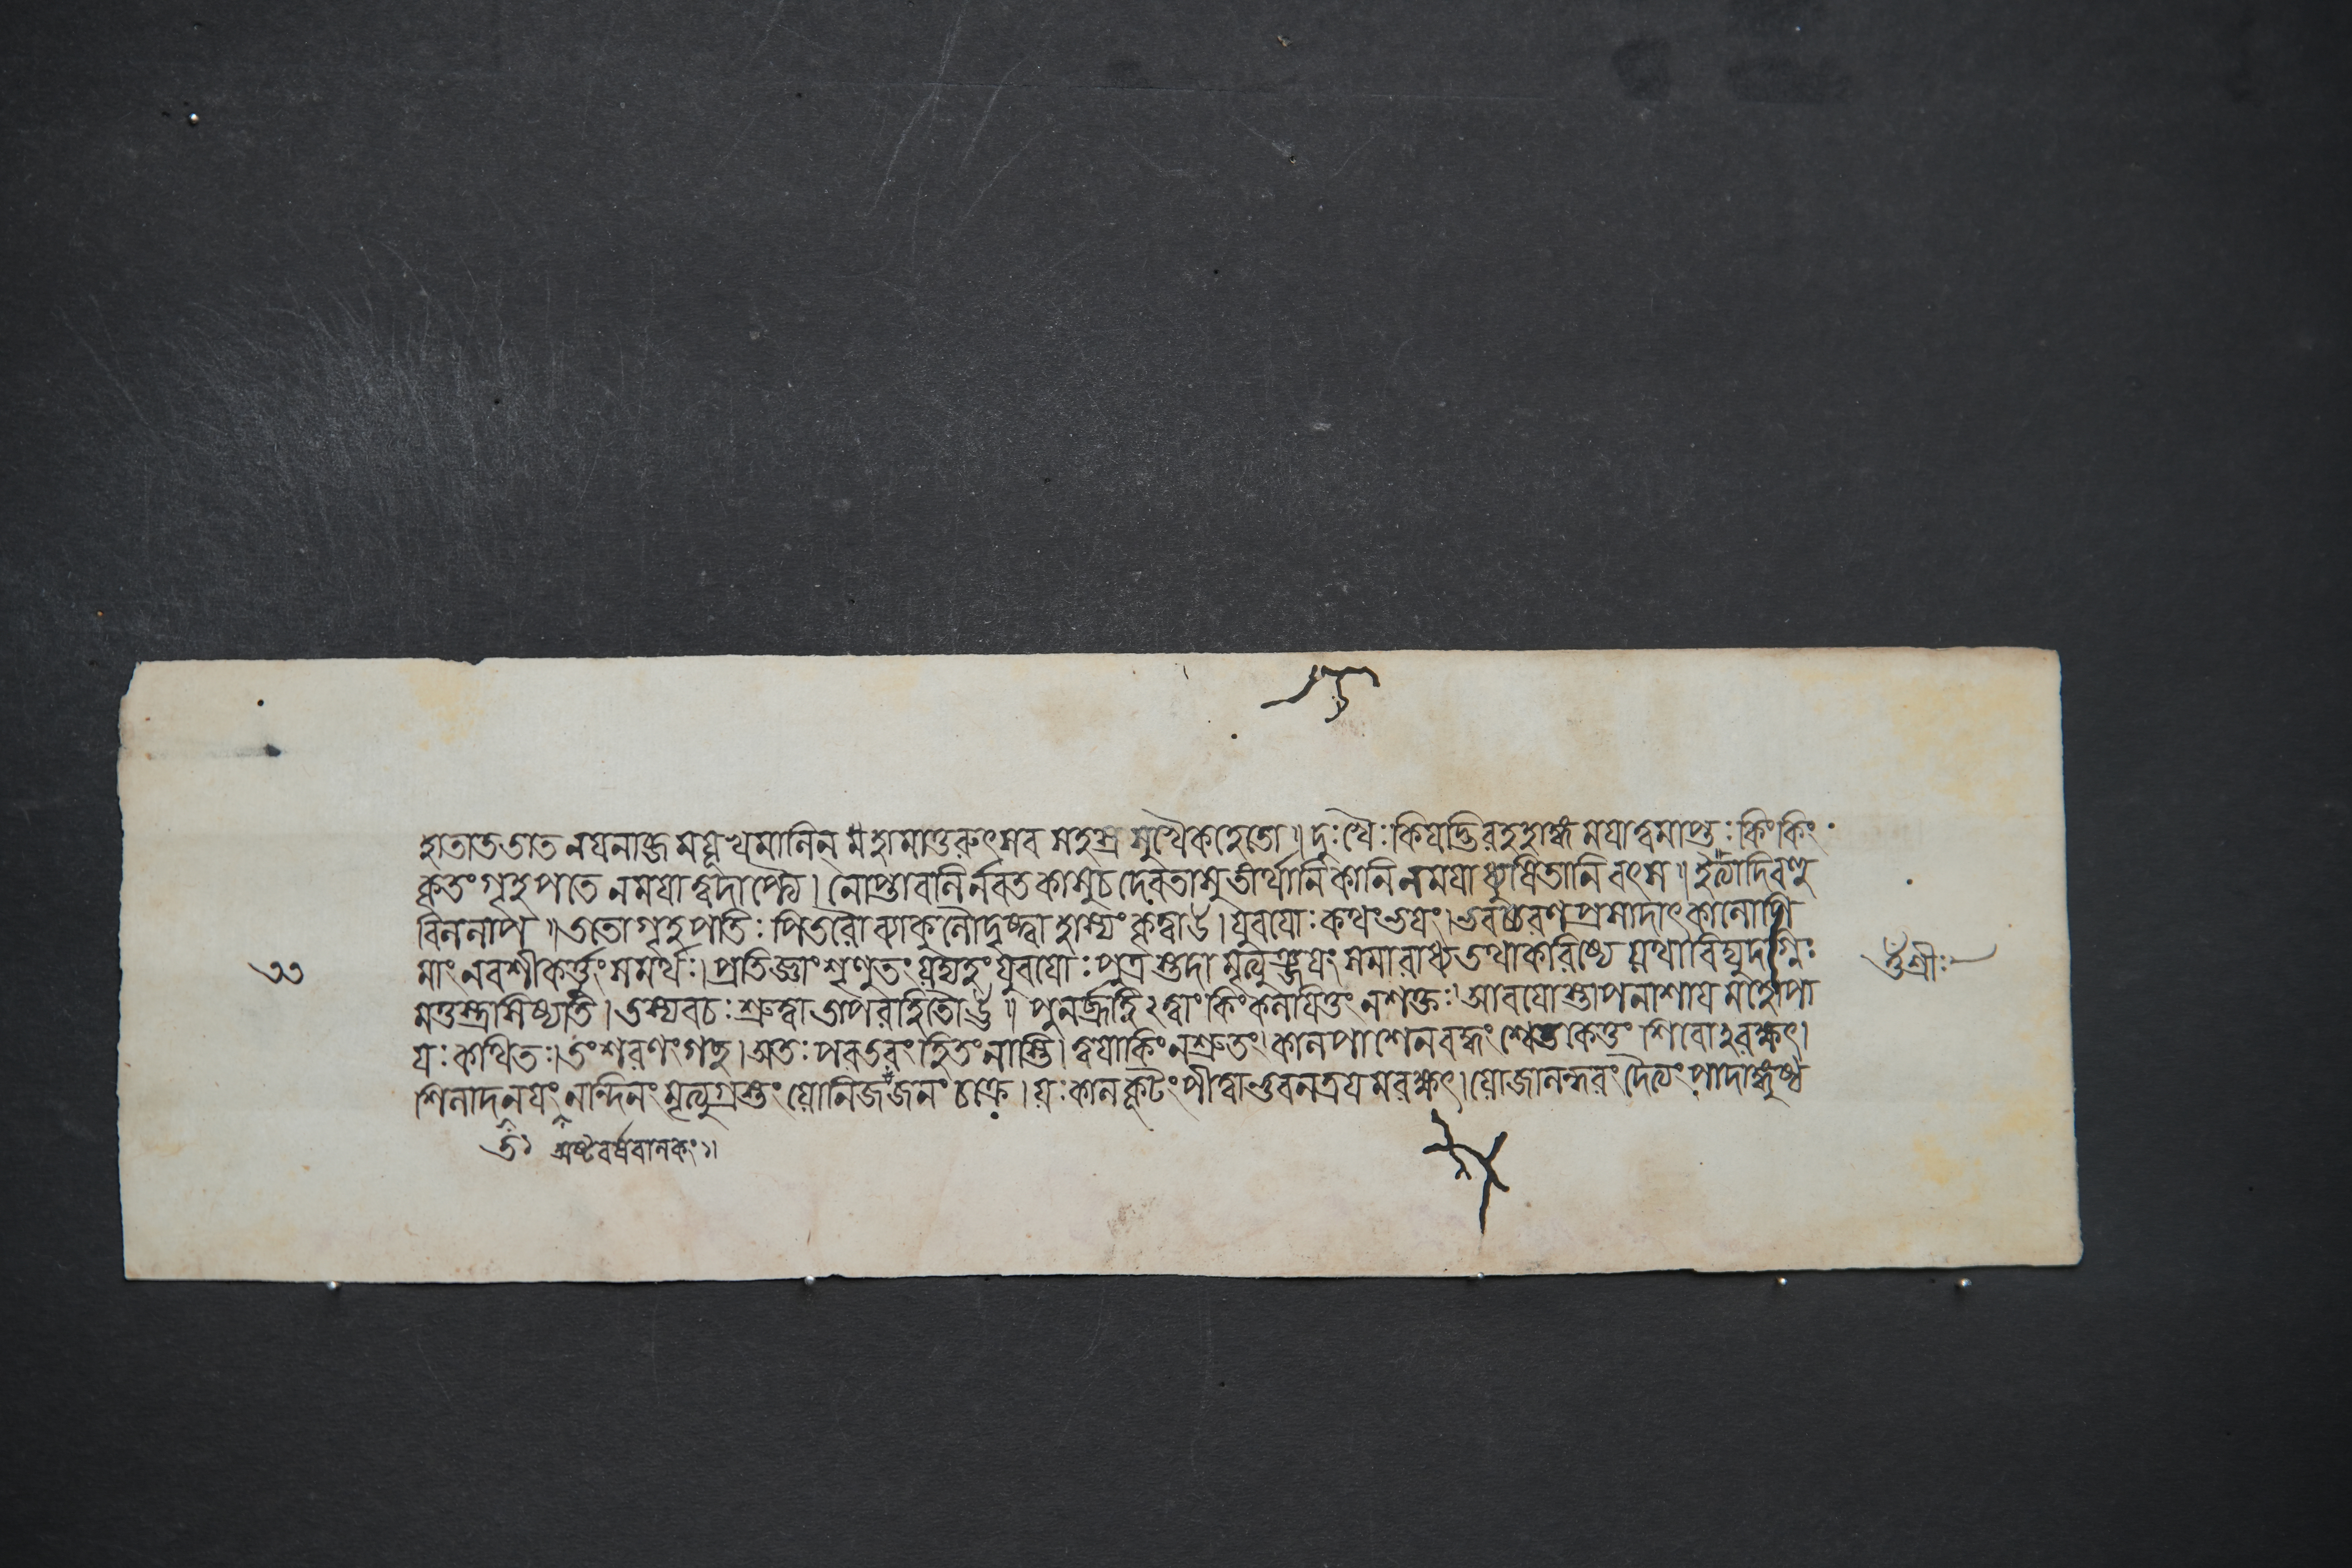 হাতাততাত নযনাব্জ মযূখমালিন্ মহামাতুরুৎসব সহস্র সুখৈকহেতো॥ দুঃখৈঃ কিযদ্ভিরহহাদ্ধং মযাত্বমাপ্তঃ কিংকিং
কৃতংগৃহপতে নমযাত্বদাপ্ত্যৈ। নোপ্তাবলির্নবত কাসুচ দেবতাসু তীর্থানি কানি নমযাধ্যুষিতানি বৎস॥ ইত্যাদিবহু
বিললাপ॥ ততোগৃহপতিঃ পিতরৌ ব্যাকুলৌদৃষ্ট্বা হাস্যং কৃত্বাহ। যুবযোঃ কথংভযং। ভবচ্চরণপ্রসাদাৎ কালোপি
৩৩ মাং নবশীকর্ত্তুংসমর্থঃ। প্রতিজ্ঞাংশৃণুতং যদ্যহং যুবযোঃ পুত্রস্তদা মৃত্যুঞ্জযং সমারাধ্য তথাকরিষ্যে যথা বিদ্যুদগ্নিঃ ওঁশ্রীঃ
মতস্ত্রাসিষ্যতি। তস্যবচঃ শ্রুত্বা তাপরহিতৌ॥ পুনর্ব্রূহি২ ত্বাং কিং কলযিতুং নশক্তঃ। আবযোস্তাপনাশায মহোপা
যঃ কথিতঃ। তংশরণংগচ্ছ। অতঃ পরতরং হিতংনাস্তি। ত্বযাকিংনশ্রুতং। কালপাশেনবদ্ধং শ্বেতকেতুং শিবোঽরক্ষৎ।
শিলাদতনযং নন্দিনং মৃত্যুগ্রস্তং যোনিজংজনং চক্রে। যঃ কালকূটং পীত্বাভুবনত্রযমরক্ষৎ। যোজালন্ধরং দৈত্যং পাদাঙ্গুষ্ঠ
অষ্টবর্ষবালকং১॥